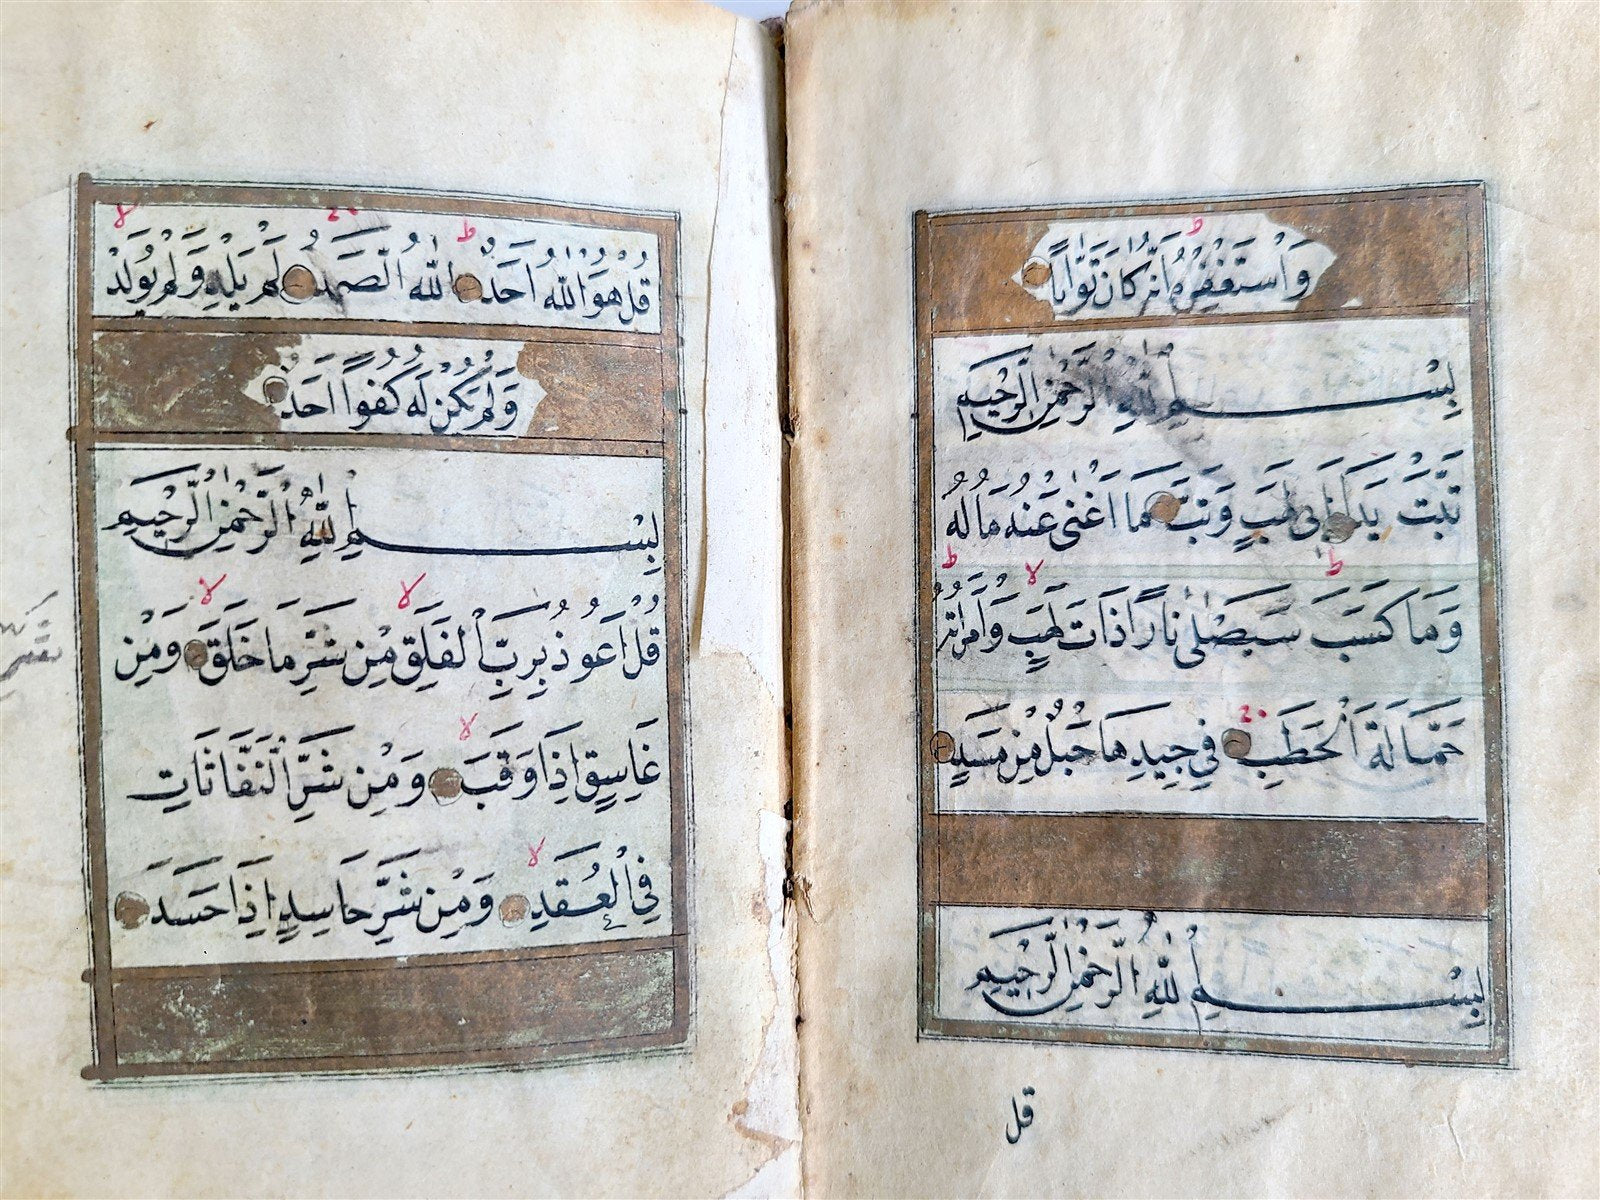 وَاسْتَغْفِرْهُ اِنَّهُ كَانَ تَوَّابًا
بِسْمِ اللّٰهِ الرَّحْمٰنِ الرَّحِيمِ
تَبَّتْ يَدَا اَبِى لَهَبٍ وَتَبَّ مَا اَغْنٰى عَنْهُ مَالُهُ
وَمَا كَسَبَ سَيَصْلٰى نَارًا ذَاتَ لَهَبٍ وَامْرَاَتُهُ
حَمَّالَةَ الْحَطَبِ فِى جِيدِهَا حَبْلٌ مِنْ مَسَدٍ
بِسْمِ اللّٰهِ الرَّحْمٰنِ الرَّحِيمِ
قل
قُلْ هُوَ اللّٰهُ اَحَدٌ اَللّٰهُ الصَّمَدُ لَمْ يَلِدْ وَلَمْ يُولَدْ
وَلَمْ يَكُنْ لَهُ كُفُوًا اَحَدٌ
بِسْمِ اللّٰهِ الرَّحْمٰنِ الرَّحِيمِ
قُلْ اَعُوذُ بِرَبِّ الْفَلَقِ مِنْ شَرِّ مَا خَلَقَ وَمِنْ
غَاسِقٍ اِذَا وَقَبَ وَمِنْ شَرِّ النَّفَّاثَاتِ
فِى الْعُقَدِ وَمِنْ شَرِّ حَاسِدٍ اِذَا حَسَدَ